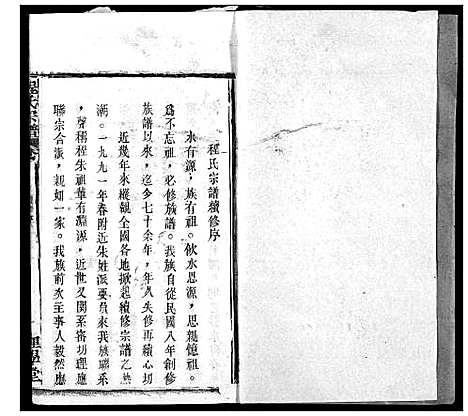 程氏宗譜續修序
水有源，族有祖。飲水思源，思親憶祖。
爲不忘祖，必修族譜。我族自從民國八年創修
族譜以來，迄今七十余年，年久失修再續心切
近幾年來縱觀全國各地掀起續修宗譜之熱
潮。一九九一年春附近朱姓派要員來我族聯系
，聲稱程朱祖華有淵源，近世又関系密切理應
聯宗合派，親如一家。我族前次主事人毅然應
程氏宗譜
理學堂